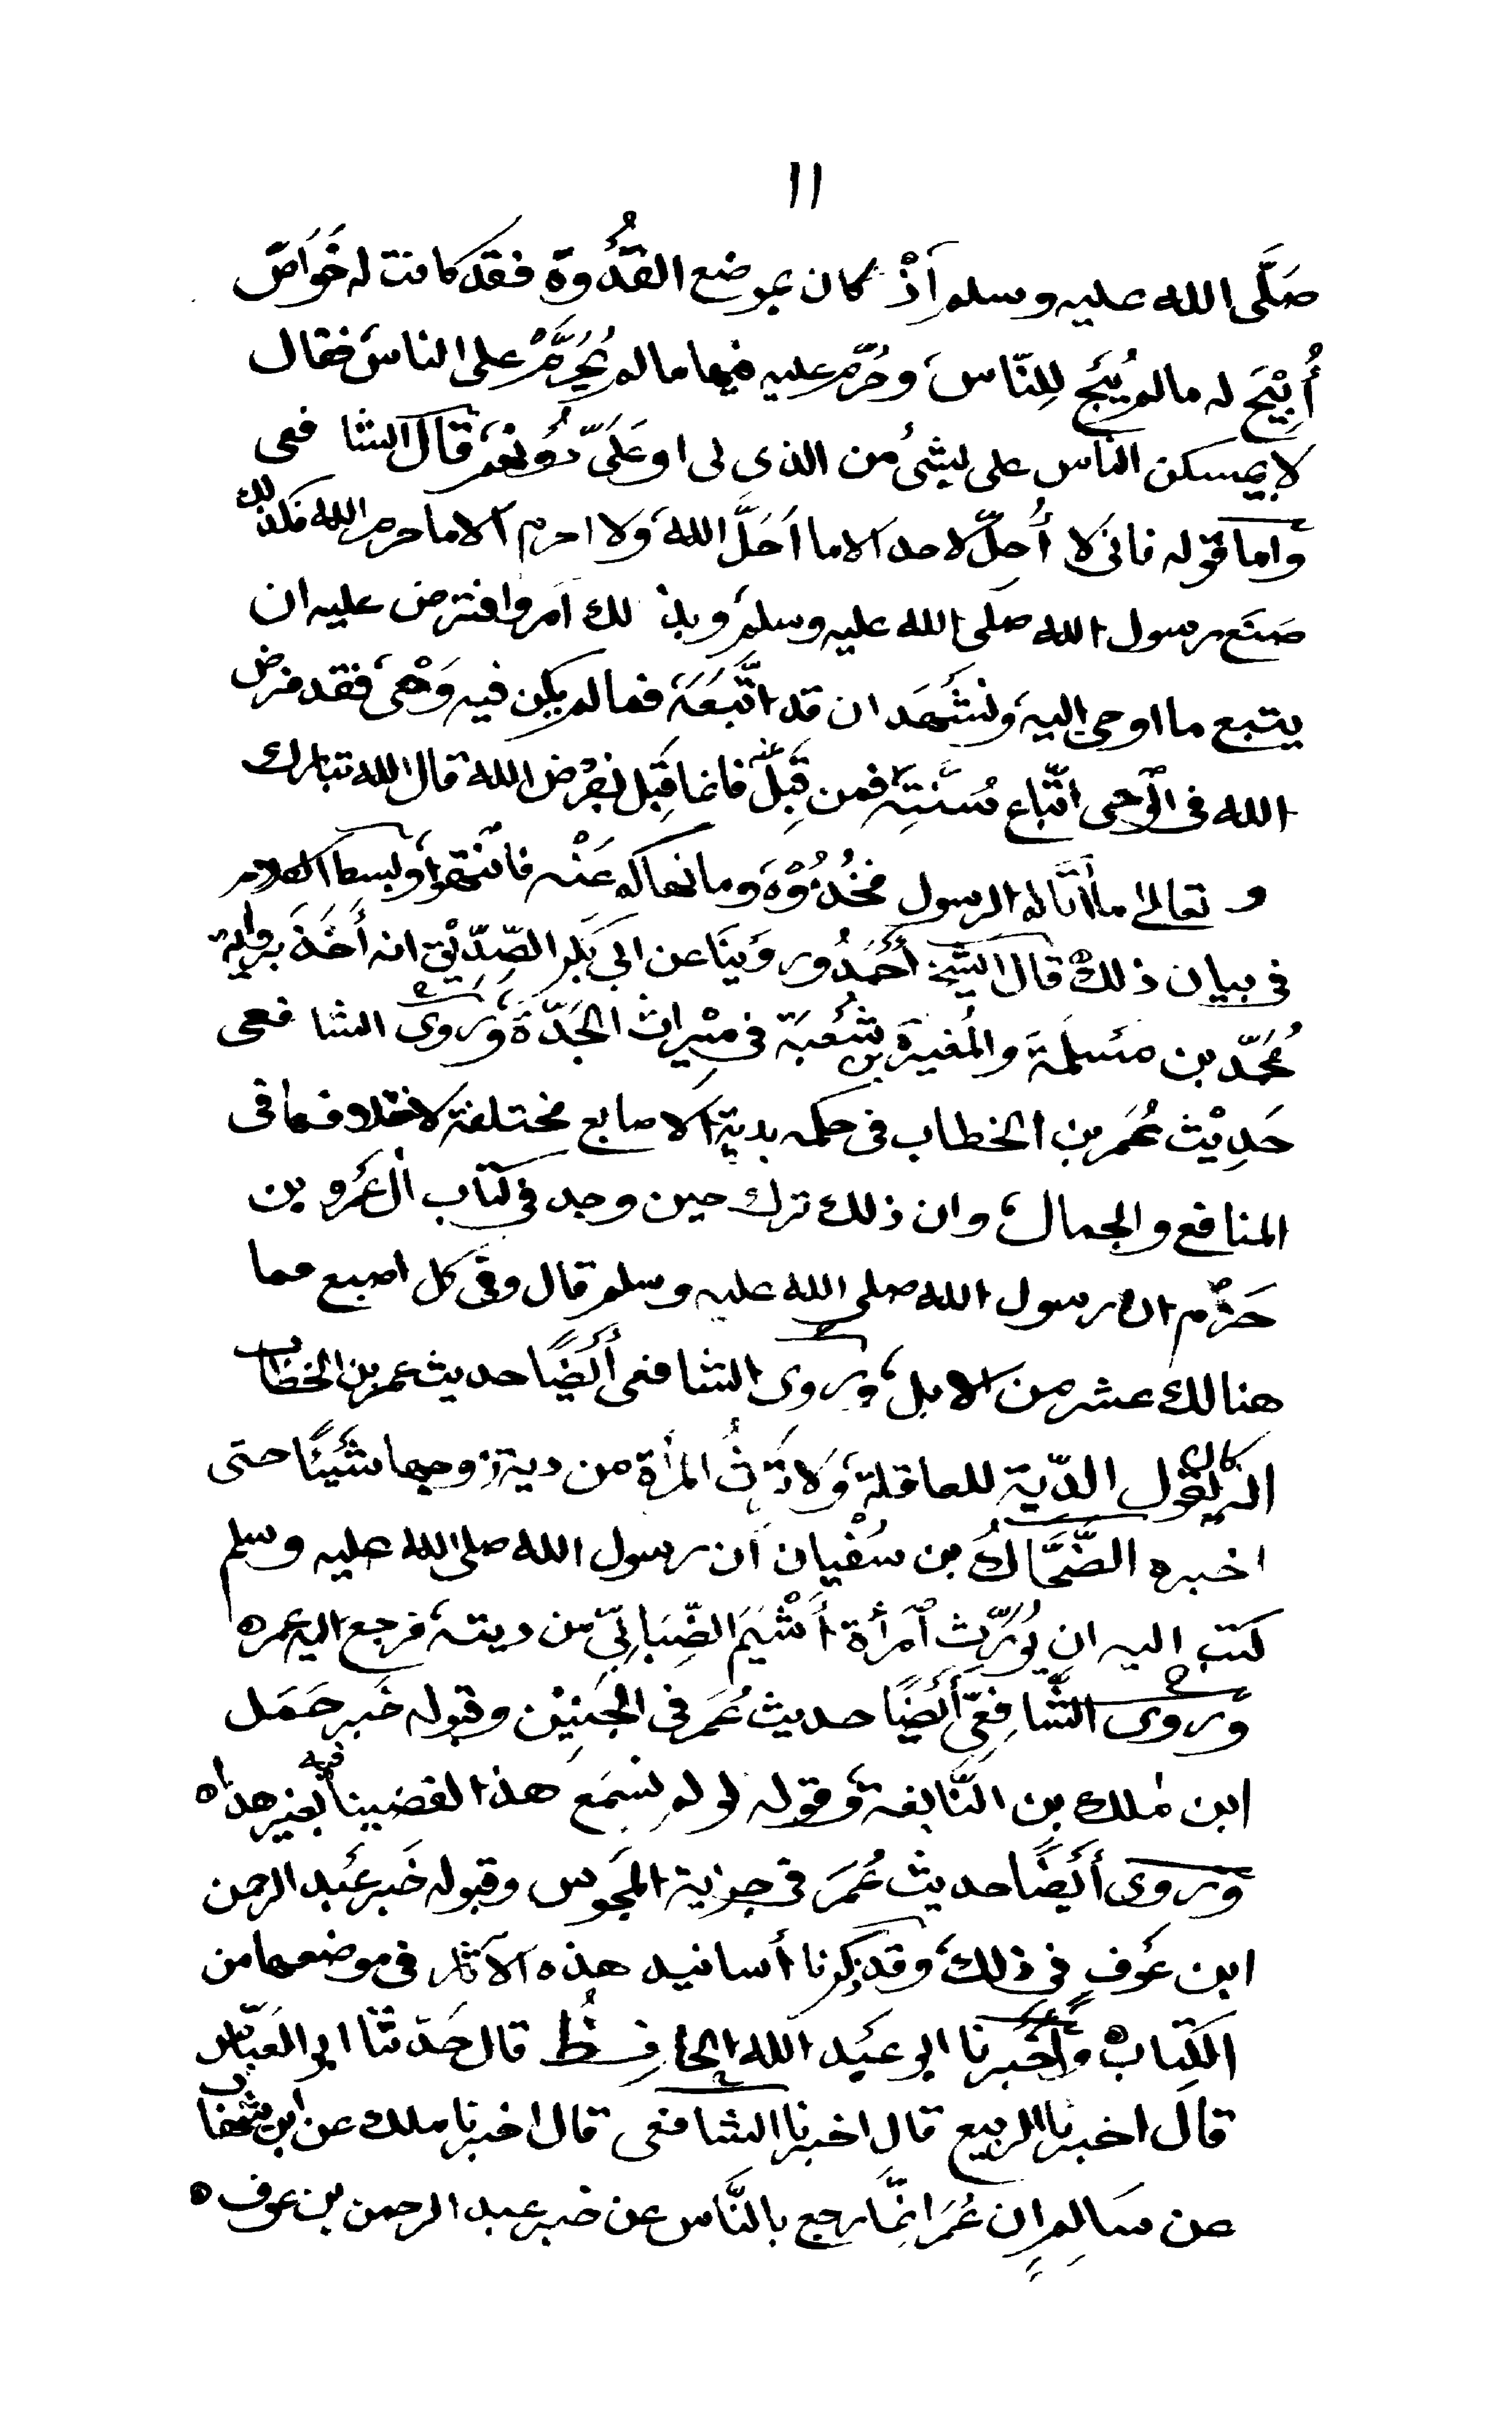 ١١
صَلَّى الله عليه وسلم اَذْ كان بموضع القُدْوة فقد كانت له خَوَاصّ
أُبِيْحَ له مالم يُبَحْ لِلنّاس، وحُرّم عليه فيها مالم يُحَرَّمْ على الناس، فقال
لا يمسكن الناس على بشئ من الذى لى او عَلَىّ دُونهم، قال الشافعى
واما قوله فانى لا أُحِلّ لاحد الا ما اَحَلَّ الله، ولا احرم الا ما حرم الله فكذلك
صنَع رسول الله صلى الله عليه وسلم، وبذلك اَمر وافترض عليه ان
يتبع ما اوحى اليه، ونشَهد ان قد اتَّبَعَه، فمالم يكن فيه وَحْىٌ، فقد فرض
الله فى الوحى اتّباع سُنّتِه، فمن قَبِلَ عنه فانما قَبِل بفرْض الله، قال الله تبارك
و تعالى ما اٰتاكم الرسول فخُذُوْهُ وما نهاكم عَنْه فانتهوا، وبسط الكلام
فى بيان ذلك ه قال الشيخ أحْمَدُ ورُوِّينَا عن ابى بَكر الصِّدِّيْق انه أَخَذَ برواية
مُحَمّد بن مَسْلَمَةَ والمُغيرَة بن شُعْبَة فى مِيْراث الجَدَّة، وروى الشافعى
حَدِيْث عُمَر بن الخطاب فى حكمه بدية الاصابع مختلفة لاختلافها فى
المنافع والجمال، وان ذلك ترك حين وجد فى كتاب اٰل عَمْرو بن
حَزْم ان رسول الله صلى الله عليه وسلم قال وفى كل اصبع مما
هنالك عشر من الابل، وروى الشافعى أَيْضًا حديث عمر بن الخطاب
انه كان يقول الدّية للعاقلة، وَلا تَرِثُ المرأة من دية زوجها شَيْئًا حتى
اخبره الضَّحَّاكُ بن سُفْيان اَن رسول الله صلى الله عليه وسلم
كتب اليه ان يُوَرّث اَمرأة أَشْيَمَ الضِّبَابِىّ من ديته، فرجع اليه عمر ه
وروى الشَّافِعِىّ أَيْضًا حديث عُمَر فى الجَنِيْن وقبوله خَبر حَمَل
ابن مٰلك بن النَّابِغة، وقوله لو لم نسمَع هذا لقضينا فيه بغير هذا ه
وروى أَيْضًا حديث عُمَرَ فى جزية المَجُوس وقبوله خَبر عَبد الرحمن
ابن عَوف فى ذلك، وقد ذكرنا أسانيد هذه الآثار فى موضعها من
الكِتاب ه وأَخْبرنا ابو عَبْد الله الحافِظُ قال حَدّثنا ابو العَبّاس
قال اخبرنا الربيع قال اخبرنا الشافعى قال اخبرنا ملك عن ابن شهاب
عن سَالِمٍ ان عُمَرَ انمَّا رجع بالنَّاس عن خبر عبد الرحمن بن عوف ه